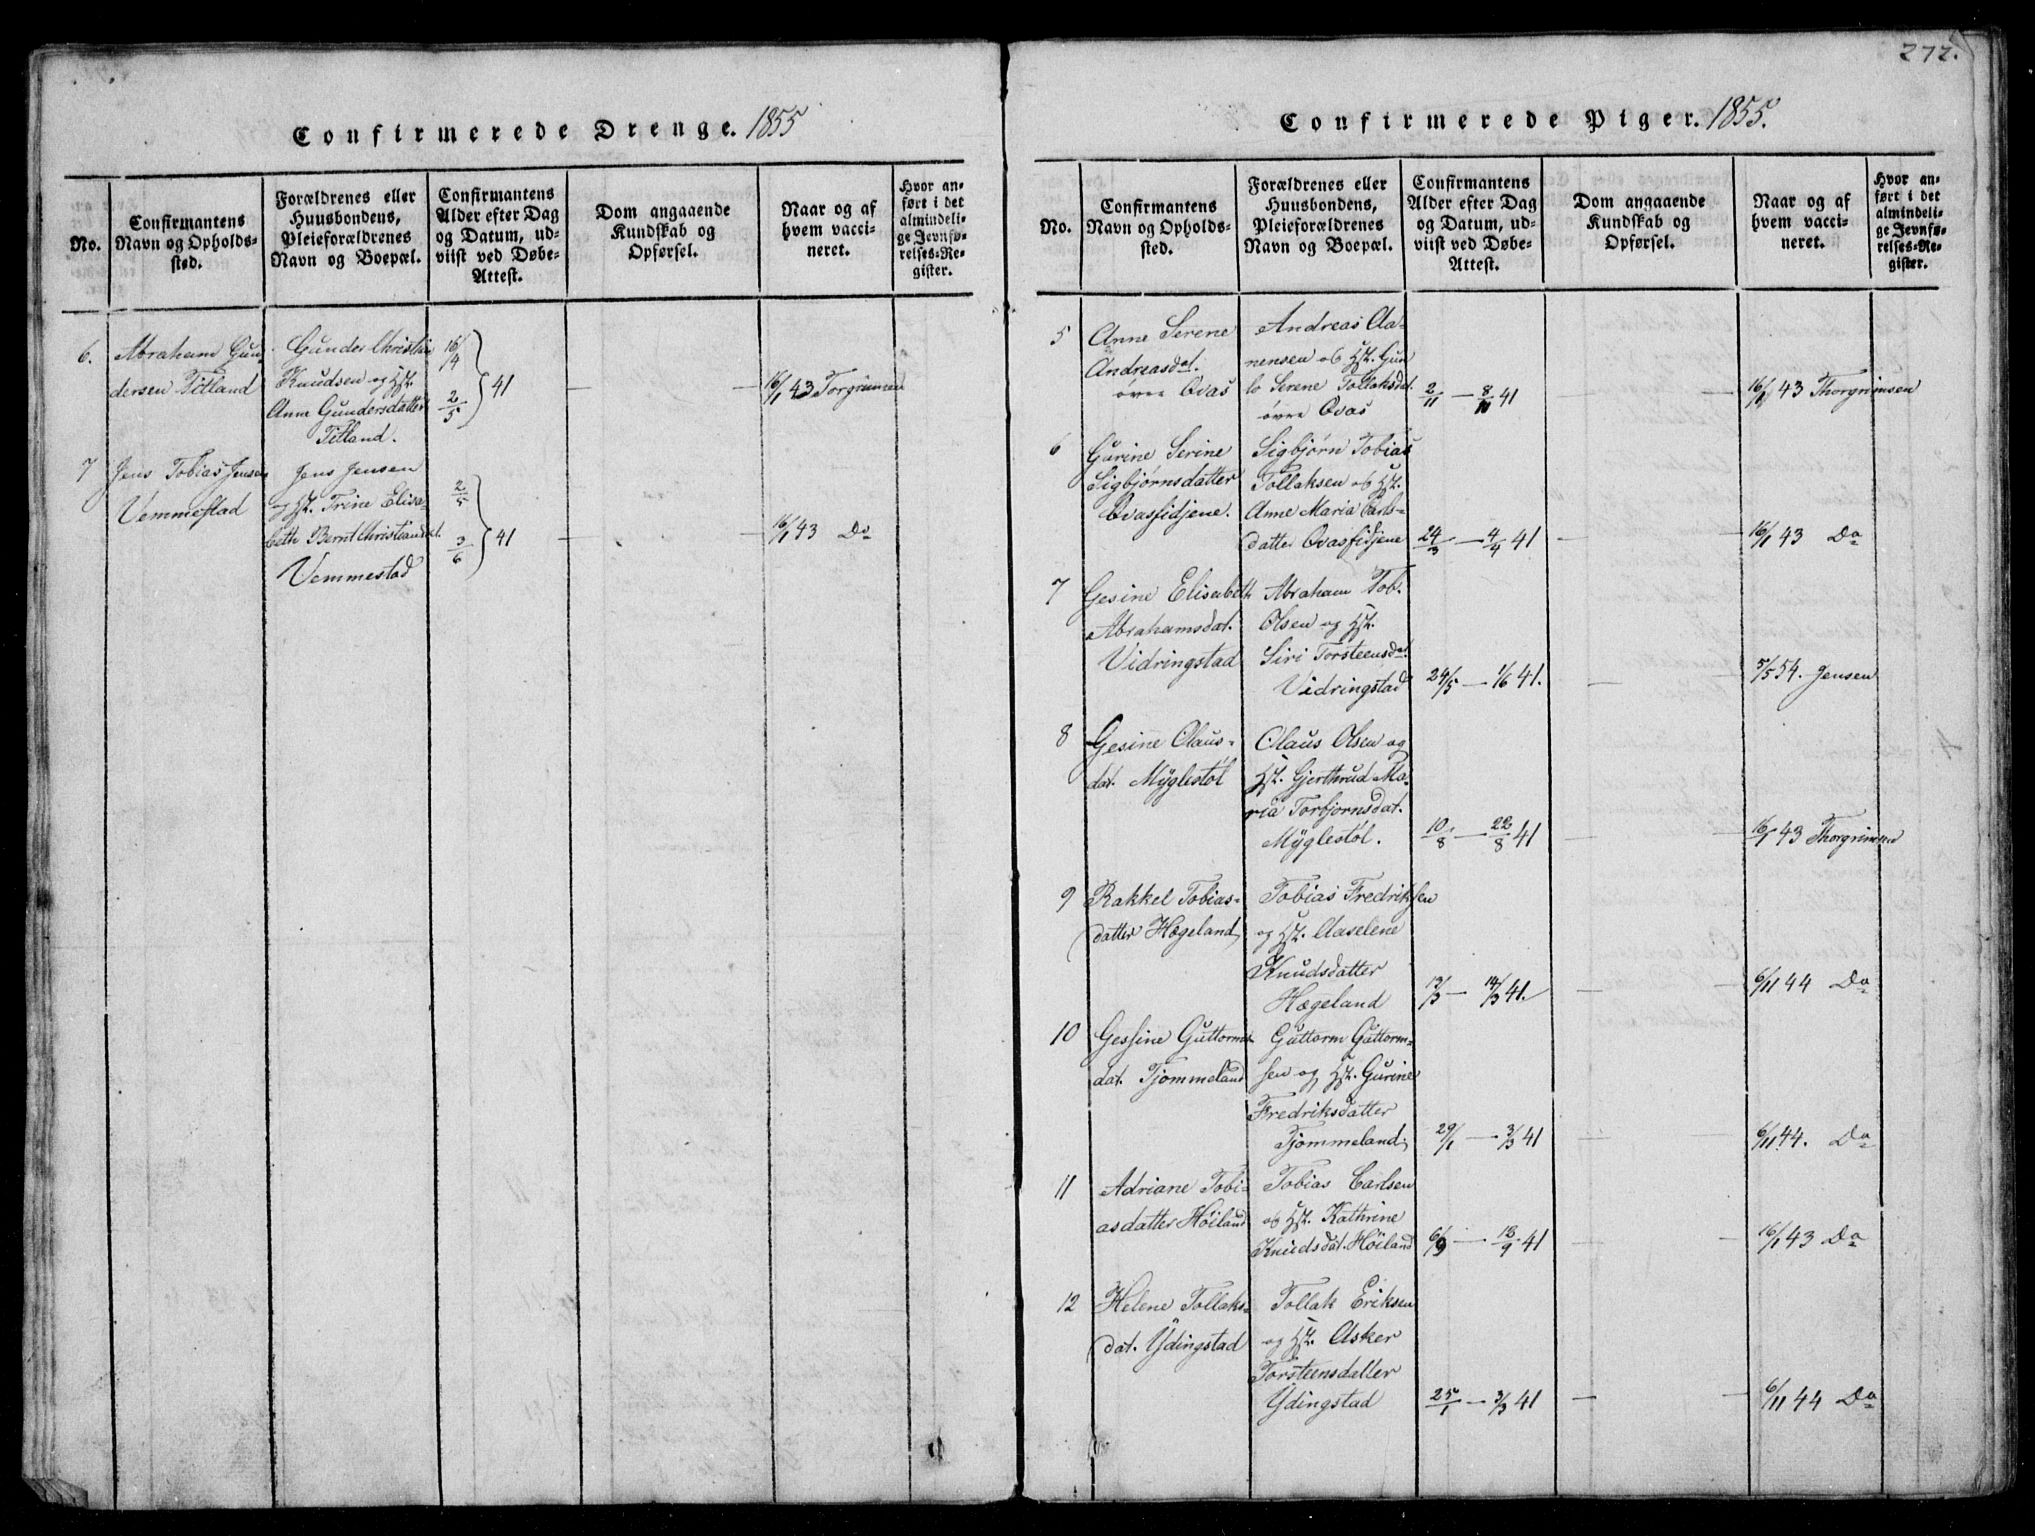 272.
Confirmerede Drenge. 1855
No.
Confirmantens Navn og Opholds-sted.
Forældrenes eller Huusbondens, Pleieforældrenes Navn og Boepæl.
Confirmantens Alder efter Dag og Datum, ud-viist ved Døbe-Attest.
Dom angaaende Kundskab og Opførsel.
Naar og af hvem vacci-neret.
Hvor an-ført i det almindeli-ge Jevnfø-relses-Re-gister.
6.
Abraham Gun-
dersen Titland
Gunder Christian
Knudsen og Hst.
Anne Gundersdatter
Titland.
16/4
2/5 } 41
—
— 16/1 43 Torgrimsen
7
Jens Tobias Jensen
Vemmestad
Jens Jensen
og Hst. Trine Elisa-
beth Bernt Christiansdt.
Vemmestad
2/5
3/6 } 41
—
— 16/1 43 Do
Confirmerede Piger. 1855.
No.
Confirmantens Navn og Opholds-sted.
Forældrenes eller Huusbondens, Pleieforældrenes Navn og Boepæl.
Confirmantens Alder efter Dag og Datum, ud-viist ved Døbe-Attest.
Dom angaaende Kundskab og Opførsel.
Naar og af hvem vacci-neret.
Hvor an-ført i det almindeli-ge Jevnfø-relses-Re-gister.
5
Anne Serene
Andreasdat.
øvre Ovas
Andreas Aa-
nensen og Hst. Gun
lo Serene Tollaksdat.
øvre Ovas
2/11 — 8/11 41
—
— 16/1 43 Thorgrimsen
6
Gurine Serine
Sigbjørnsdatter
Ovasfidjene.
Sigbjørn Tobias
Tollaksen og Hst.
Anne Maria Carls-
datter Ovasfidjene
24/3 — 4/4 41
—
— 16/1 43 Do
7
Gesine Elisabeth
Abrahamsdat.
Vidringstad
Abraham Tob.
Olsen og Hst.
Siri Torsteensdat.
Vidringstad
24/5 — 1/6 41.
—
— 5/5 54. Jensen
8
Gesine Claus-
dat. Myglestøl
Claus Olsen og
Hst. Gjerthrud Ma-
ria Torbjornsdat.
Myglestøl.
10/8 — 22/8 41
—
— 16/1 43 Thorgrimsen
9
Rakkel Tobias-
datter Hægeland
Tobias Fredriksen
og Hst. Aaselene
Knudsdatter
Hægeland
13/3 — 14/3 41.
—
— 6/11 44 Do
10
Gessine Guttorms
dat. Tjommeland
Guttorm Guttorm-
sen og Hst. Gurine
Fredriksdatter
Tjommeland.
29/1 — 3/3 41
—
— 6/11 44. Do
11
Adriane Tobi-
asdatter Høiland
Tobias Carlsen
og Hst. Kathrine
Knudsdat. Høiland
6/9 — 13/9 41
—
— 16/1 43 Do
12
Helene Tollaks-
dat. Ydingstad
Tollak Eriksen
og Hst. Asker
Torsteensdatter
Ydingstad
25/1 — 3/3 41
—
— 6/11 44 Do